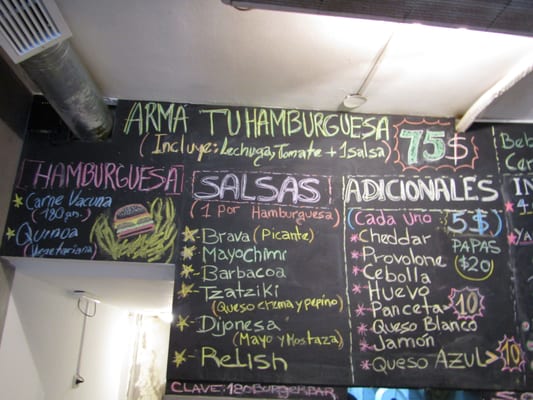 ARMA TU HAMBURGUESA
(Incluye: Lechuga, Tomate + 1 salsa)
75$
HAMBURGUESA
Carne Vacuna
(180 gm.)
Quinoa
(Vegetariana)
SALSAS
(1 Por Hamburguesa)
- Brava (Picante)
- Mayochimi
- Barbacoa
- Tzatziki
(Queso crema y pepino)
- Dijonesa
(Mayo y Mostaza)
- Relish
ADICIONALES
(Cada uno 5$)
Cheddar
Provolone
Cebolla
Huevo
Panceta 10
Queso Blanco
Jamón
Queso Azul > 10
PAPAS
$20
CLAVE: 180BURGERBAR
Beb
Cer
IN